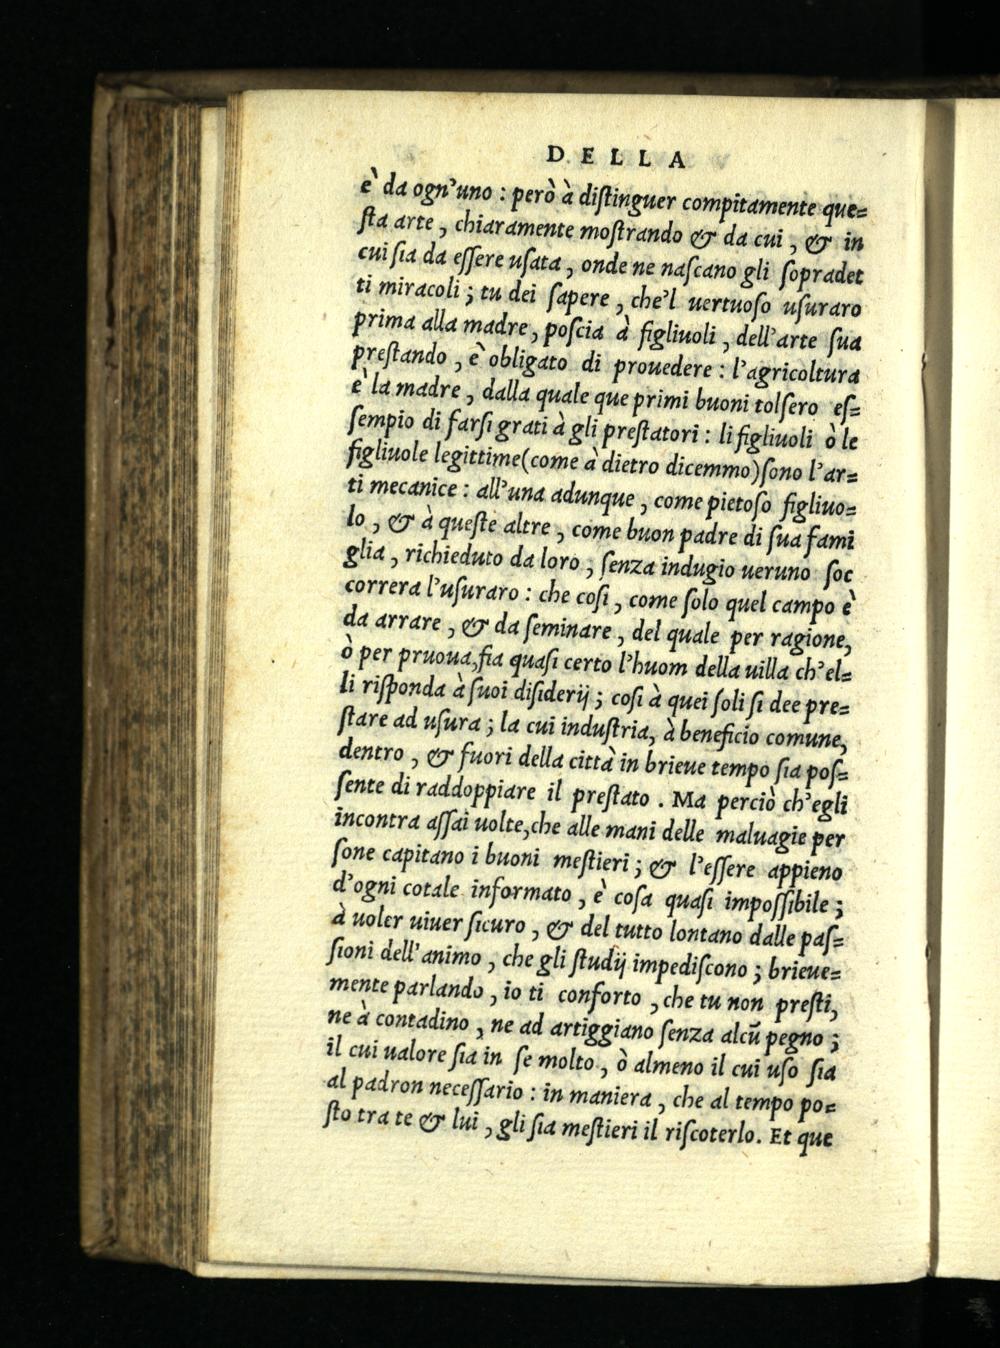 DELLA
è da ogn'uno : però à diſtinguer compitamente que=
ſta arte , chiaramente moſtrando & da cui , & in
cui ſia da eſſere uſata , onde ne naſcano gli ſopradet
ti miracoli ; tu dei ſapere , che'l uertuoſo uſuraro
prima alla madre, poſcia à figliuoli , dell'arte ſua
preſtando , è obligato di prouedere : l'agricoltura
è la madre , dalla quale que primi buoni tolſero eſ=
ſempio di farſi grati à gli preſtatori : li figliuoli ò le
figliuole legittime(come à dietro dicemmo)ſono l'ar=
ti mecanice : all'una adunque , come pietoſo figliuo=
lo , & à queſte altre , come buon padre di ſua fami
glia , richieduto da loro , ſenza indugio ueruno ſoc
correra l'uſuraro : che coſi , come ſolo quel campo è
da arrare , & da ſeminare , del quale per ragione,
ò per pruoua,ſia quaſi certo l'huom della uilla ch'el=
li riſponda à ſuoi diſiderij ; coſi à quei ſoli ſi dee pre=
ſtare ad uſura ; la cui induſtria, à beneficio comune,
dentro , & fuori della città in brieue tempo ſia poſ=
ſente di raddoppiare il preſtato . Ma perciò ch'egli
incontra aſſai uolte,che alle mani delle maluagie per
ſone capitano i buoni meſtieri ; & l'eſſere appieno
d'ogni cotale informato , è coſa quaſi impoſſibile ;
à uoler uiuer ſicuro , & del tutto lontano dalle paſ=
ſioni dell'animo , che gli ſtudij impediſcono ; brieue=
mente parlando , io ti conforto , che tu non preſti,
ne à contadino , ne ad artiggiano ſenza alcũ pegno ;
il cui ualore ſia in ſe molto , ò almeno il cui uſo ſia
al padron neceſſario : in maniera , che al tempo po=
ſto tra te & lui , gli ſia meſtieri il riſcoterlo. Et que